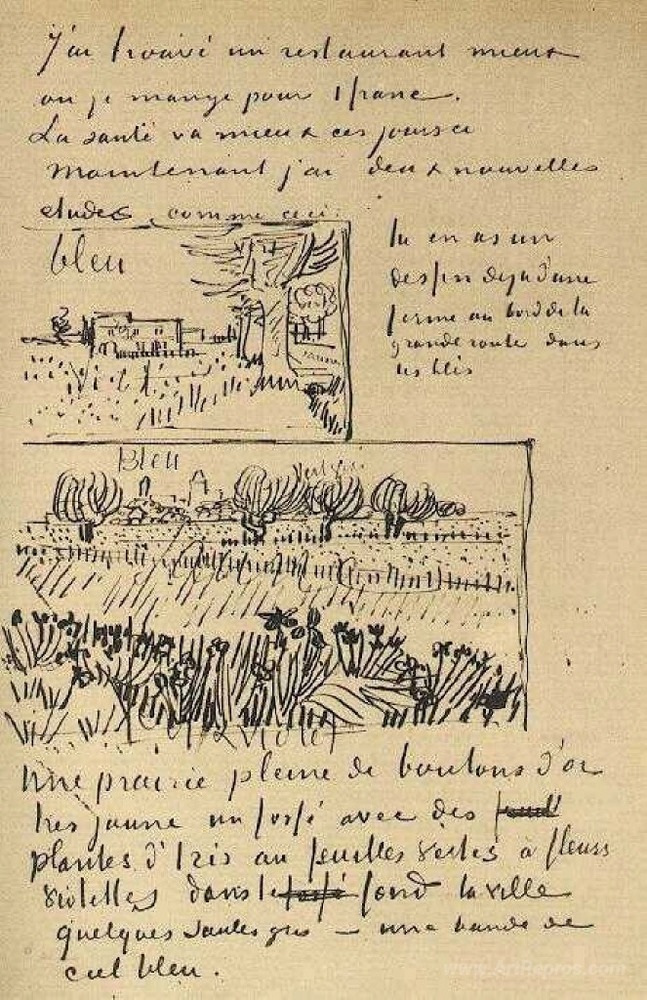 J'ai trouvé un restaurant mieux
ou je mange pour 1 franc.
La santé va mieux ces jours ci
Maintenant j'ai deux nouvelles
etudes comme ceci:
bleu
tu en as un
dessin deja d'une
ferme au bord de la
grande route dans
les blés
Bleu
violet
Une prairie pleine de boutons d'or
tres jaune un fossé avec des
plantes d'Iris au feuilles vertes à fleurs
violettes dans le fossé fond la ville
quelques saules gris – une bande de
ciel bleu.